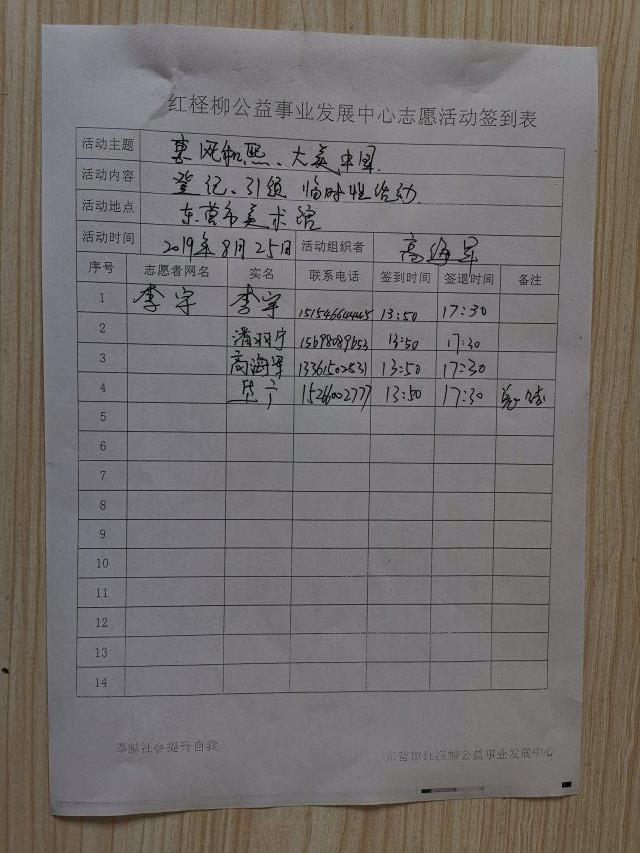 红柽柳公益事业发展中心志愿活动签到表
活动主题 惠风和熙、大美中国
活动内容 登记、引领 临时性活动
活动地点 东营市美术馆
活动时间 2019年8月25日 活动组织者 高海军
序号 志愿者网名 实名 联系电话 签到时间 签退时间 备注
1 李宇 李宇 13:50 17:30
2 13:50 17:30
3 高海军 13361502831 13:50 17:30
4 15266002777 13:50 17:30
5
6
7
8
9
10
11
12
13
14
奉献社会提升自我 东营市红柽柳公益事业发展中心